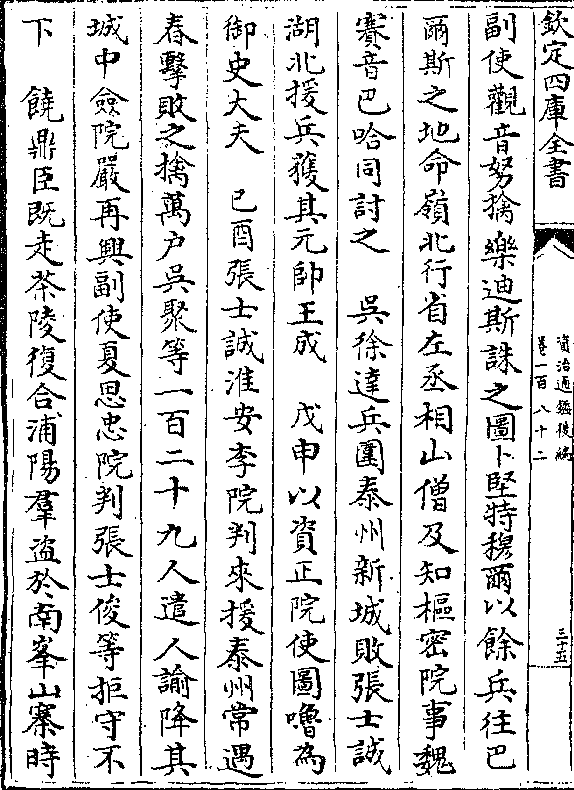 欽定四庫全書
資治通鑑後編
卷一百八十二
三十五
副使觀音努擒樂迪斯誅之圖卜堅特穆爾以餘兵往巴
爾斯之地命嶺北行省左丞相山僧及知樞密院事魏
賽音巴哈同討之　吳徐達兵圍泰州新城敗張士誠
湖北援兵獲其元帥王成　戊申以資正院使圖嚕為
御史大夫　己酉張士誠淮安李院判來援泰州常遇
春擊敗之擒萬户吳聚等一百二十九人遣人諭降其
城中僉院嚴再興副使夏思忠院判張士俊等拒守不
下　饒鼎臣既走茶陵復合浦陽羣盗於南峯山寨時